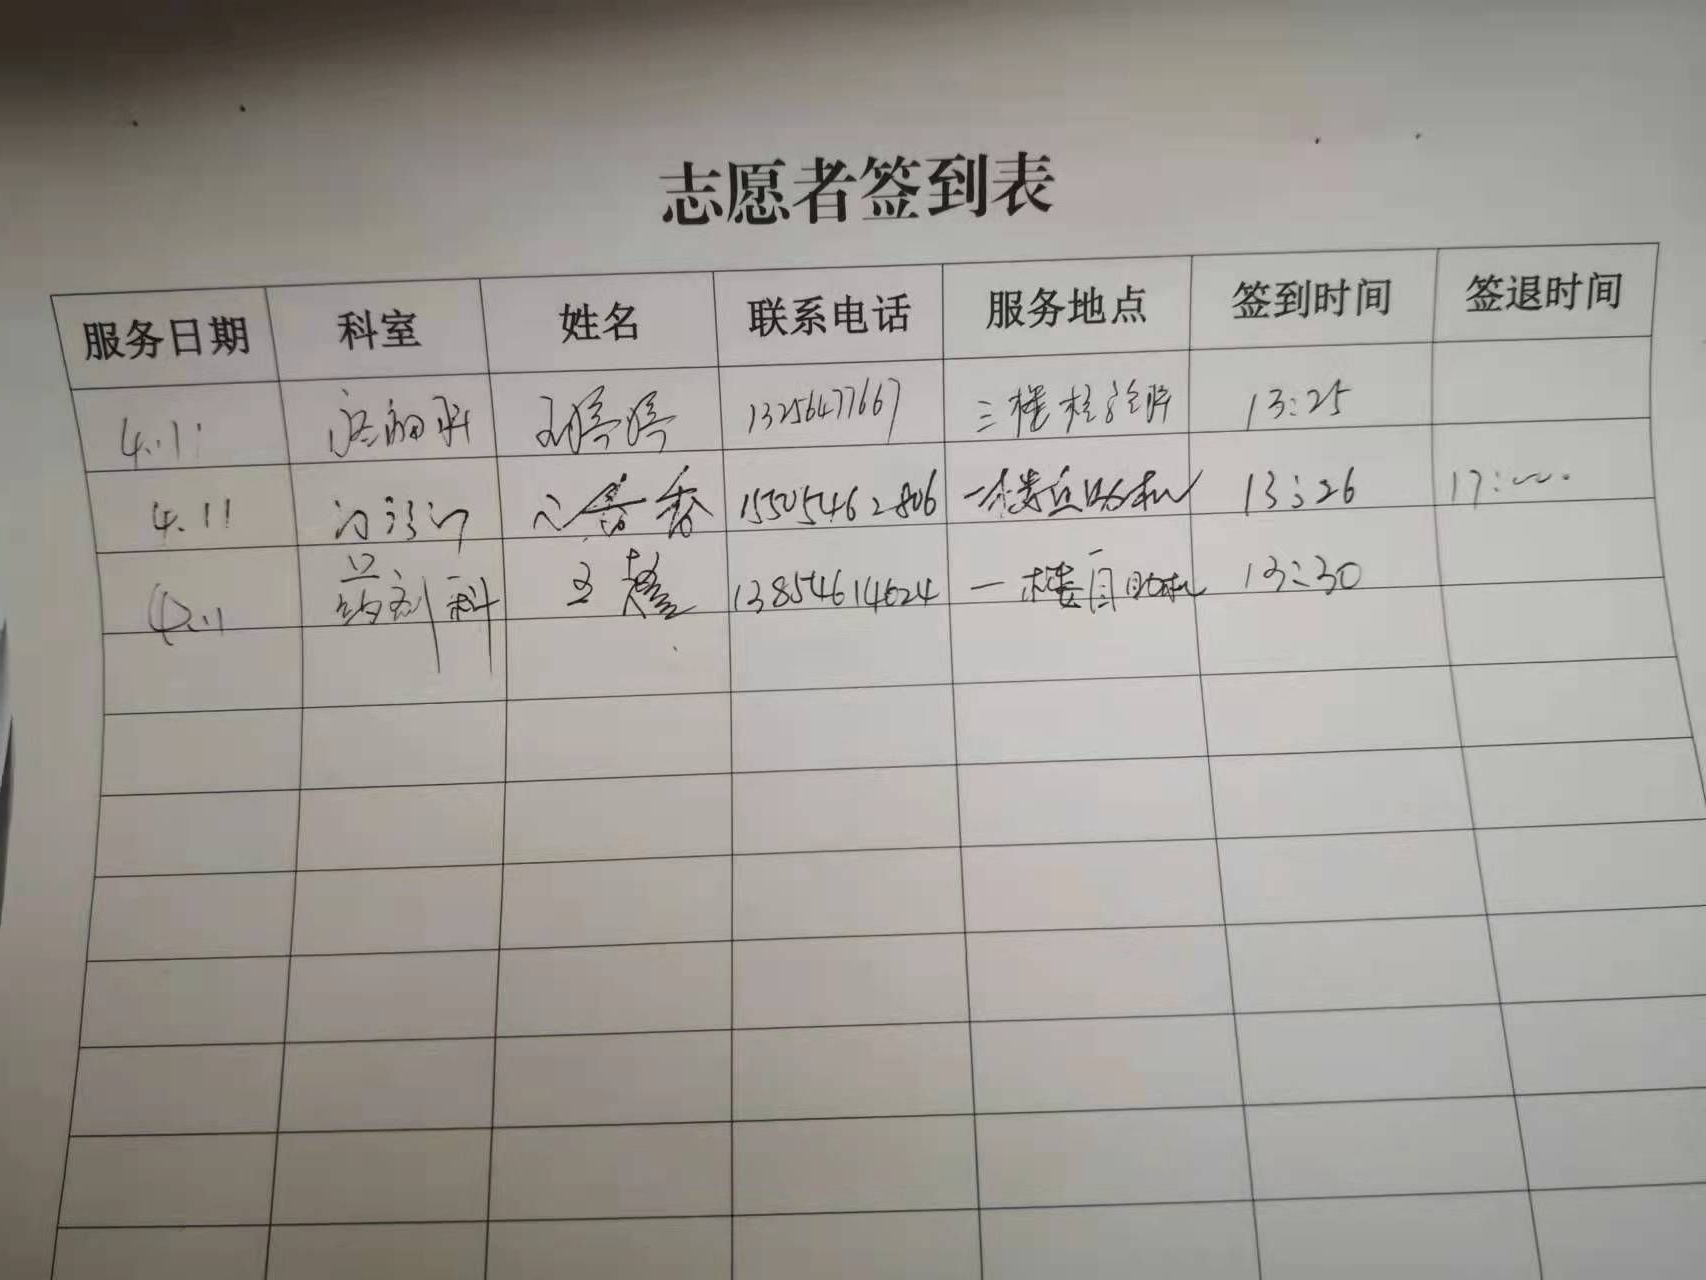 志愿者签到表
服务日期 科室 姓名 联系电话 服务地点 签到时间 签退时间
4.11 13256477667 三楼 13:25
4.11 门诊 15505462806 一楼自助机 13:26 17:
4.11 药剂科 王 13854614624 一楼自助机 13:30